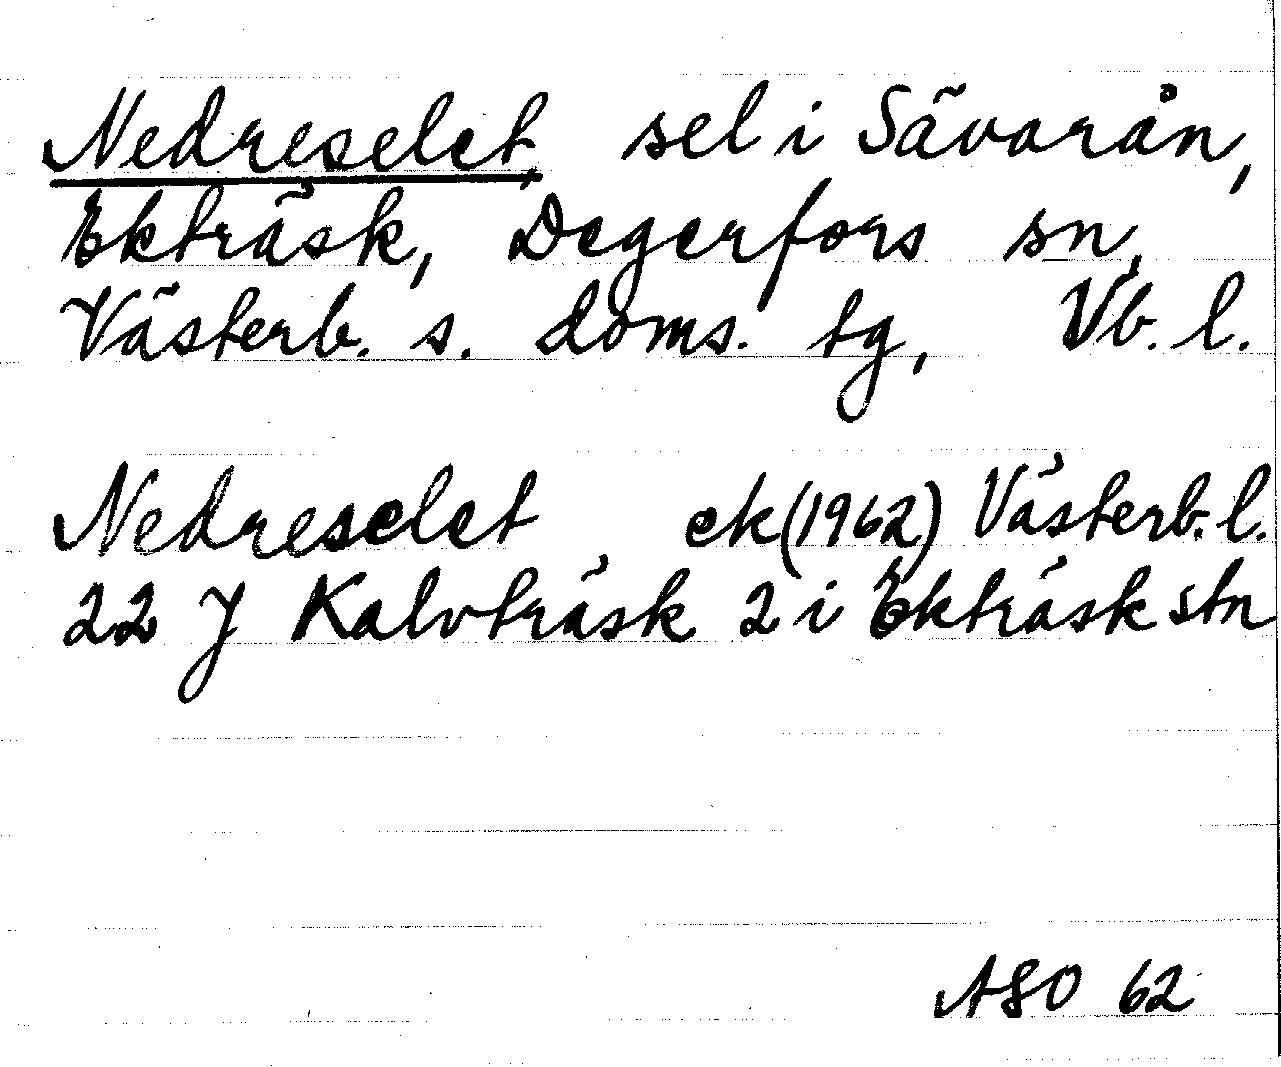 Nedreselet, sel i Sävarån,
Ekträsk, Degerfors sn,
Västerb. s. doms. tg, Vb. l.
Nedreselet ek (1962) Västerb. l.
22 J Kalvträsk 2 i Ekträsk stn
ASO 62